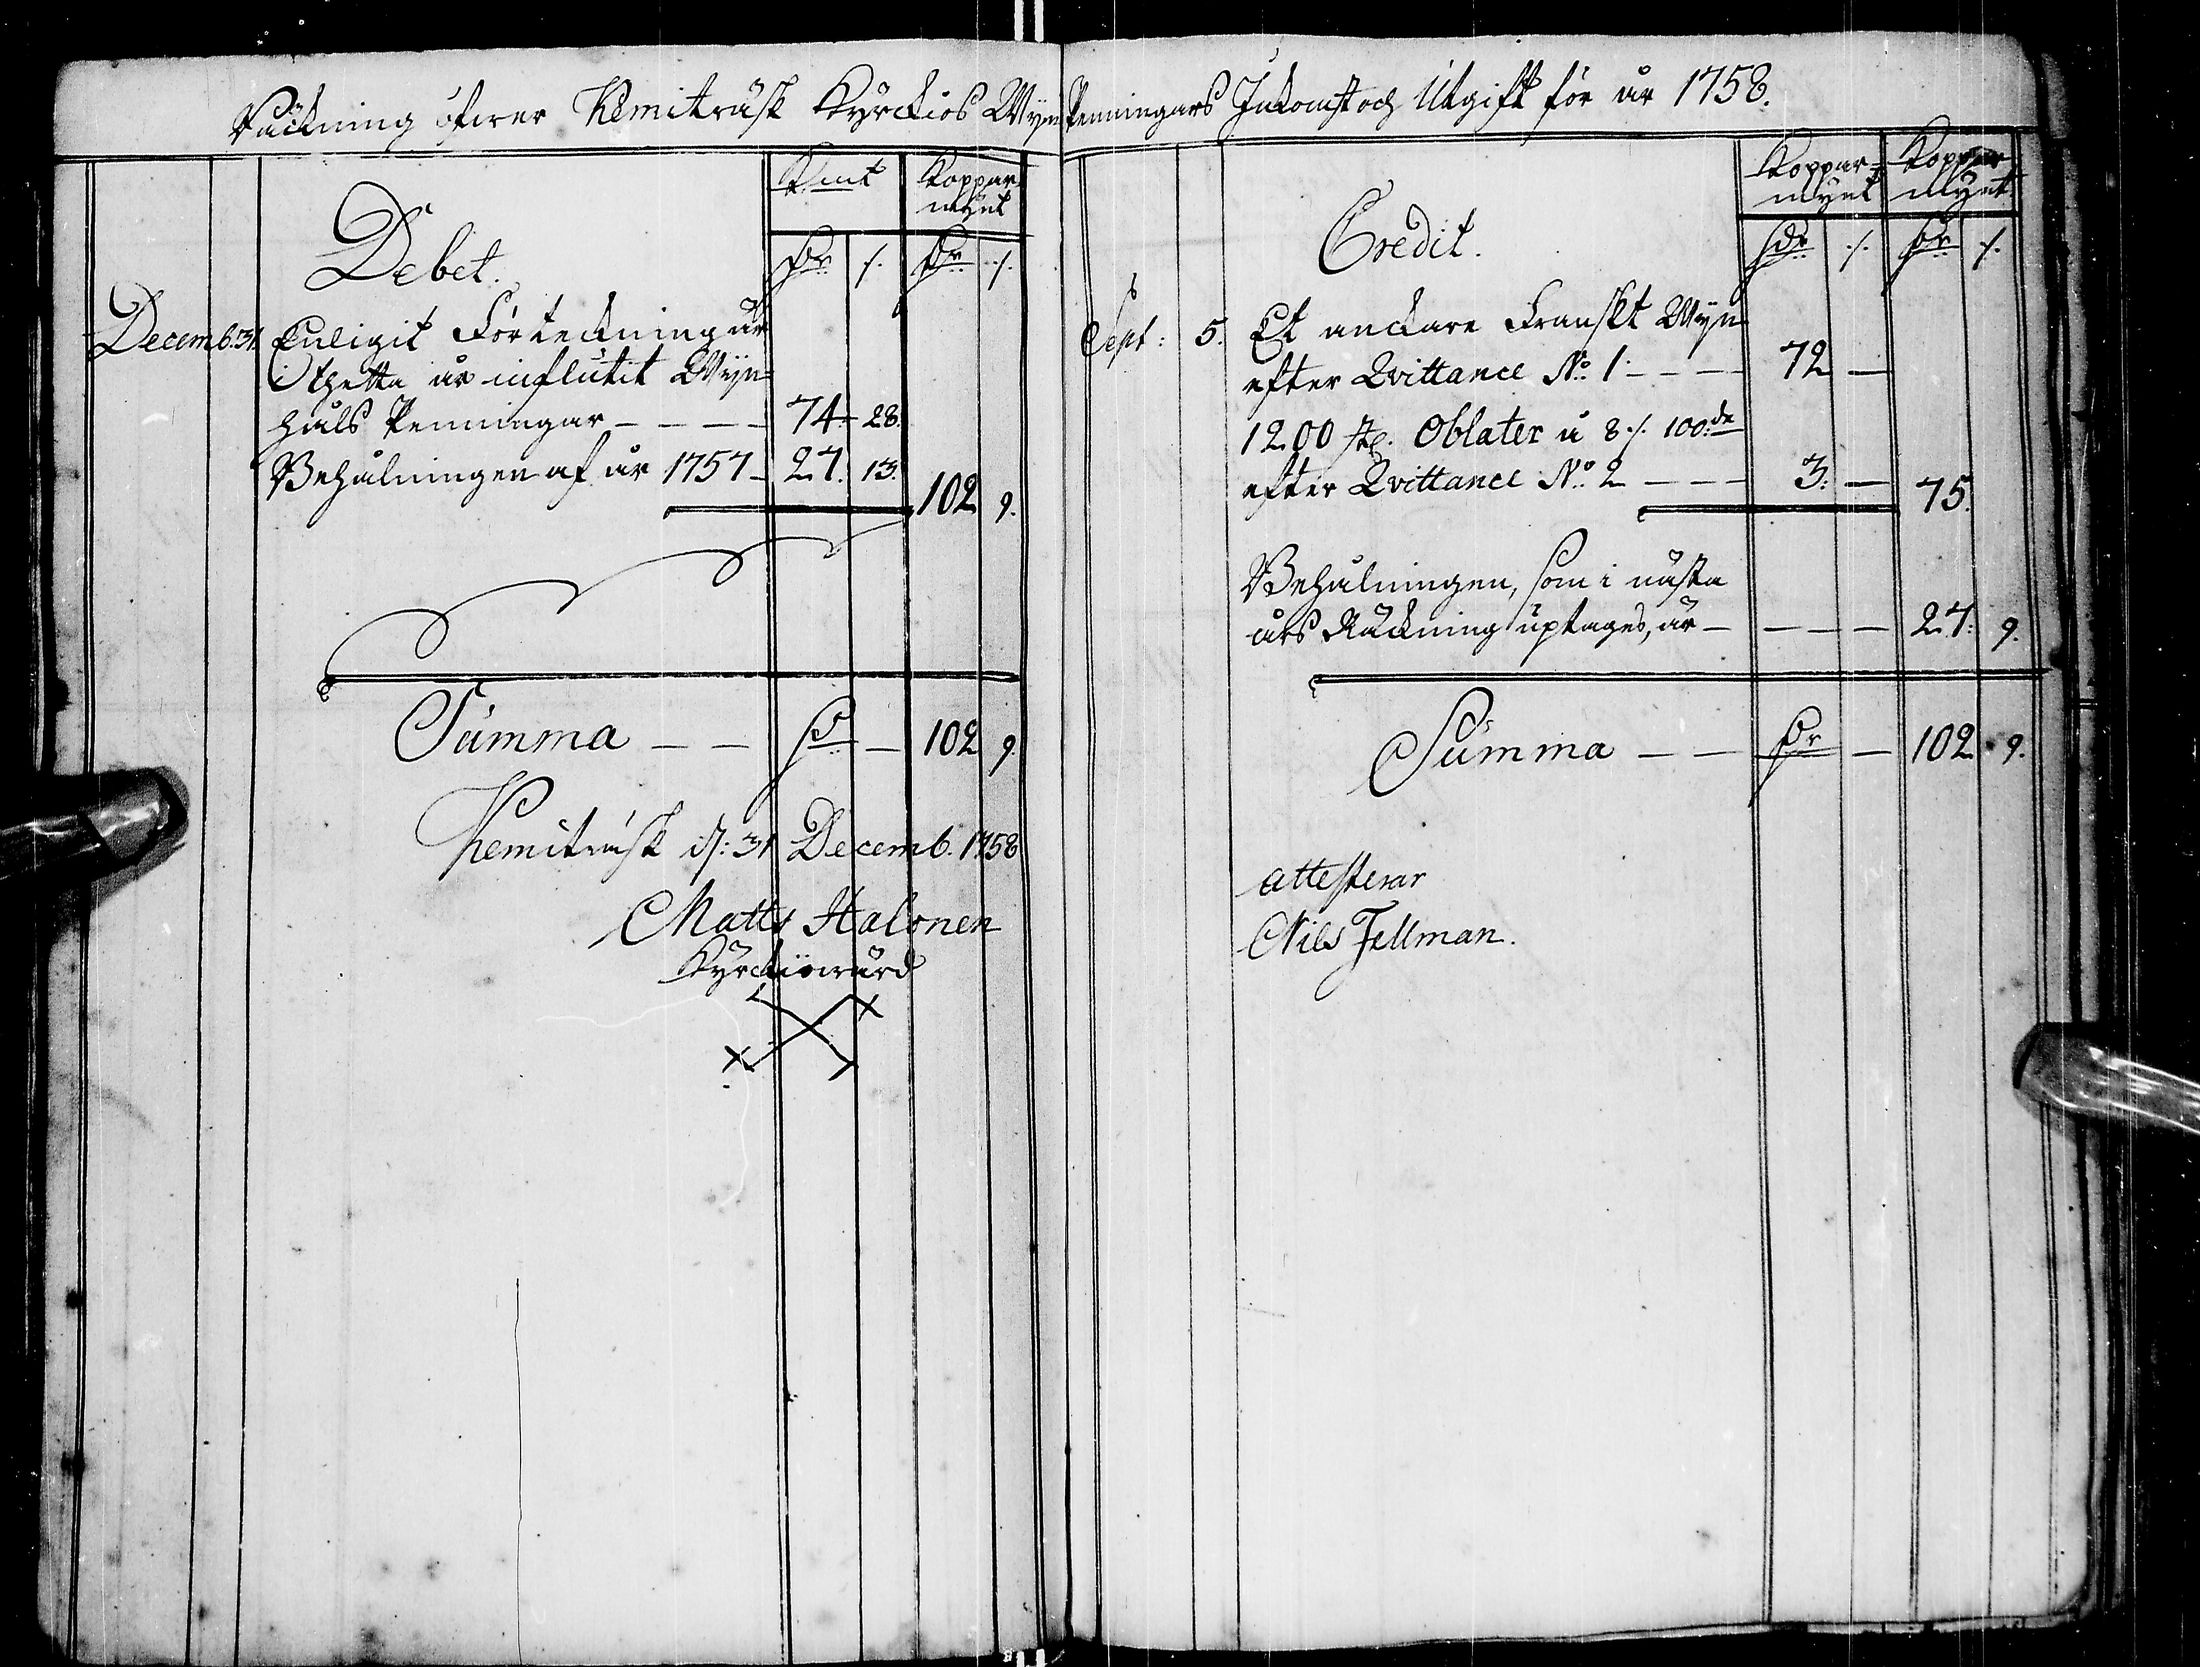 Räckning öfwer Kemiträsk Kyrckios Wijn Penningars Inkomst och Utgift för år 1758.
Kmt
Koppar
mynt
Debet.
Dr ./.
Dr ./.
Decemb. 31. Enligit Förteckning är
i thetta år influtit Wijn=
håls Penningar — — — — 74: 28.
Behålningen af år 1757 — 27. 13.
102 9.
Summa — — Dr — 102 9.
Kemiträsk d: 31 Decemb. 1758
Matts Halonen
Kyrckiowärd
Koppar=
mynt
Koppar
mynt
Credit.
Dr ./.
Dr ./.
Sept: 5. Et anckare Franskt Wijn
efter Qvittance No. 1 — — — 72 —
1200 st. Oblater à 8 ./. 100:de
efter Qvittance No. 2 — — — 3: —
75.
Behålningen, som i nästa
års Räckning uptages, är — — — — 27: 9.
Summa — — Dr — 102 9.
attesterar
Nils Fellman.